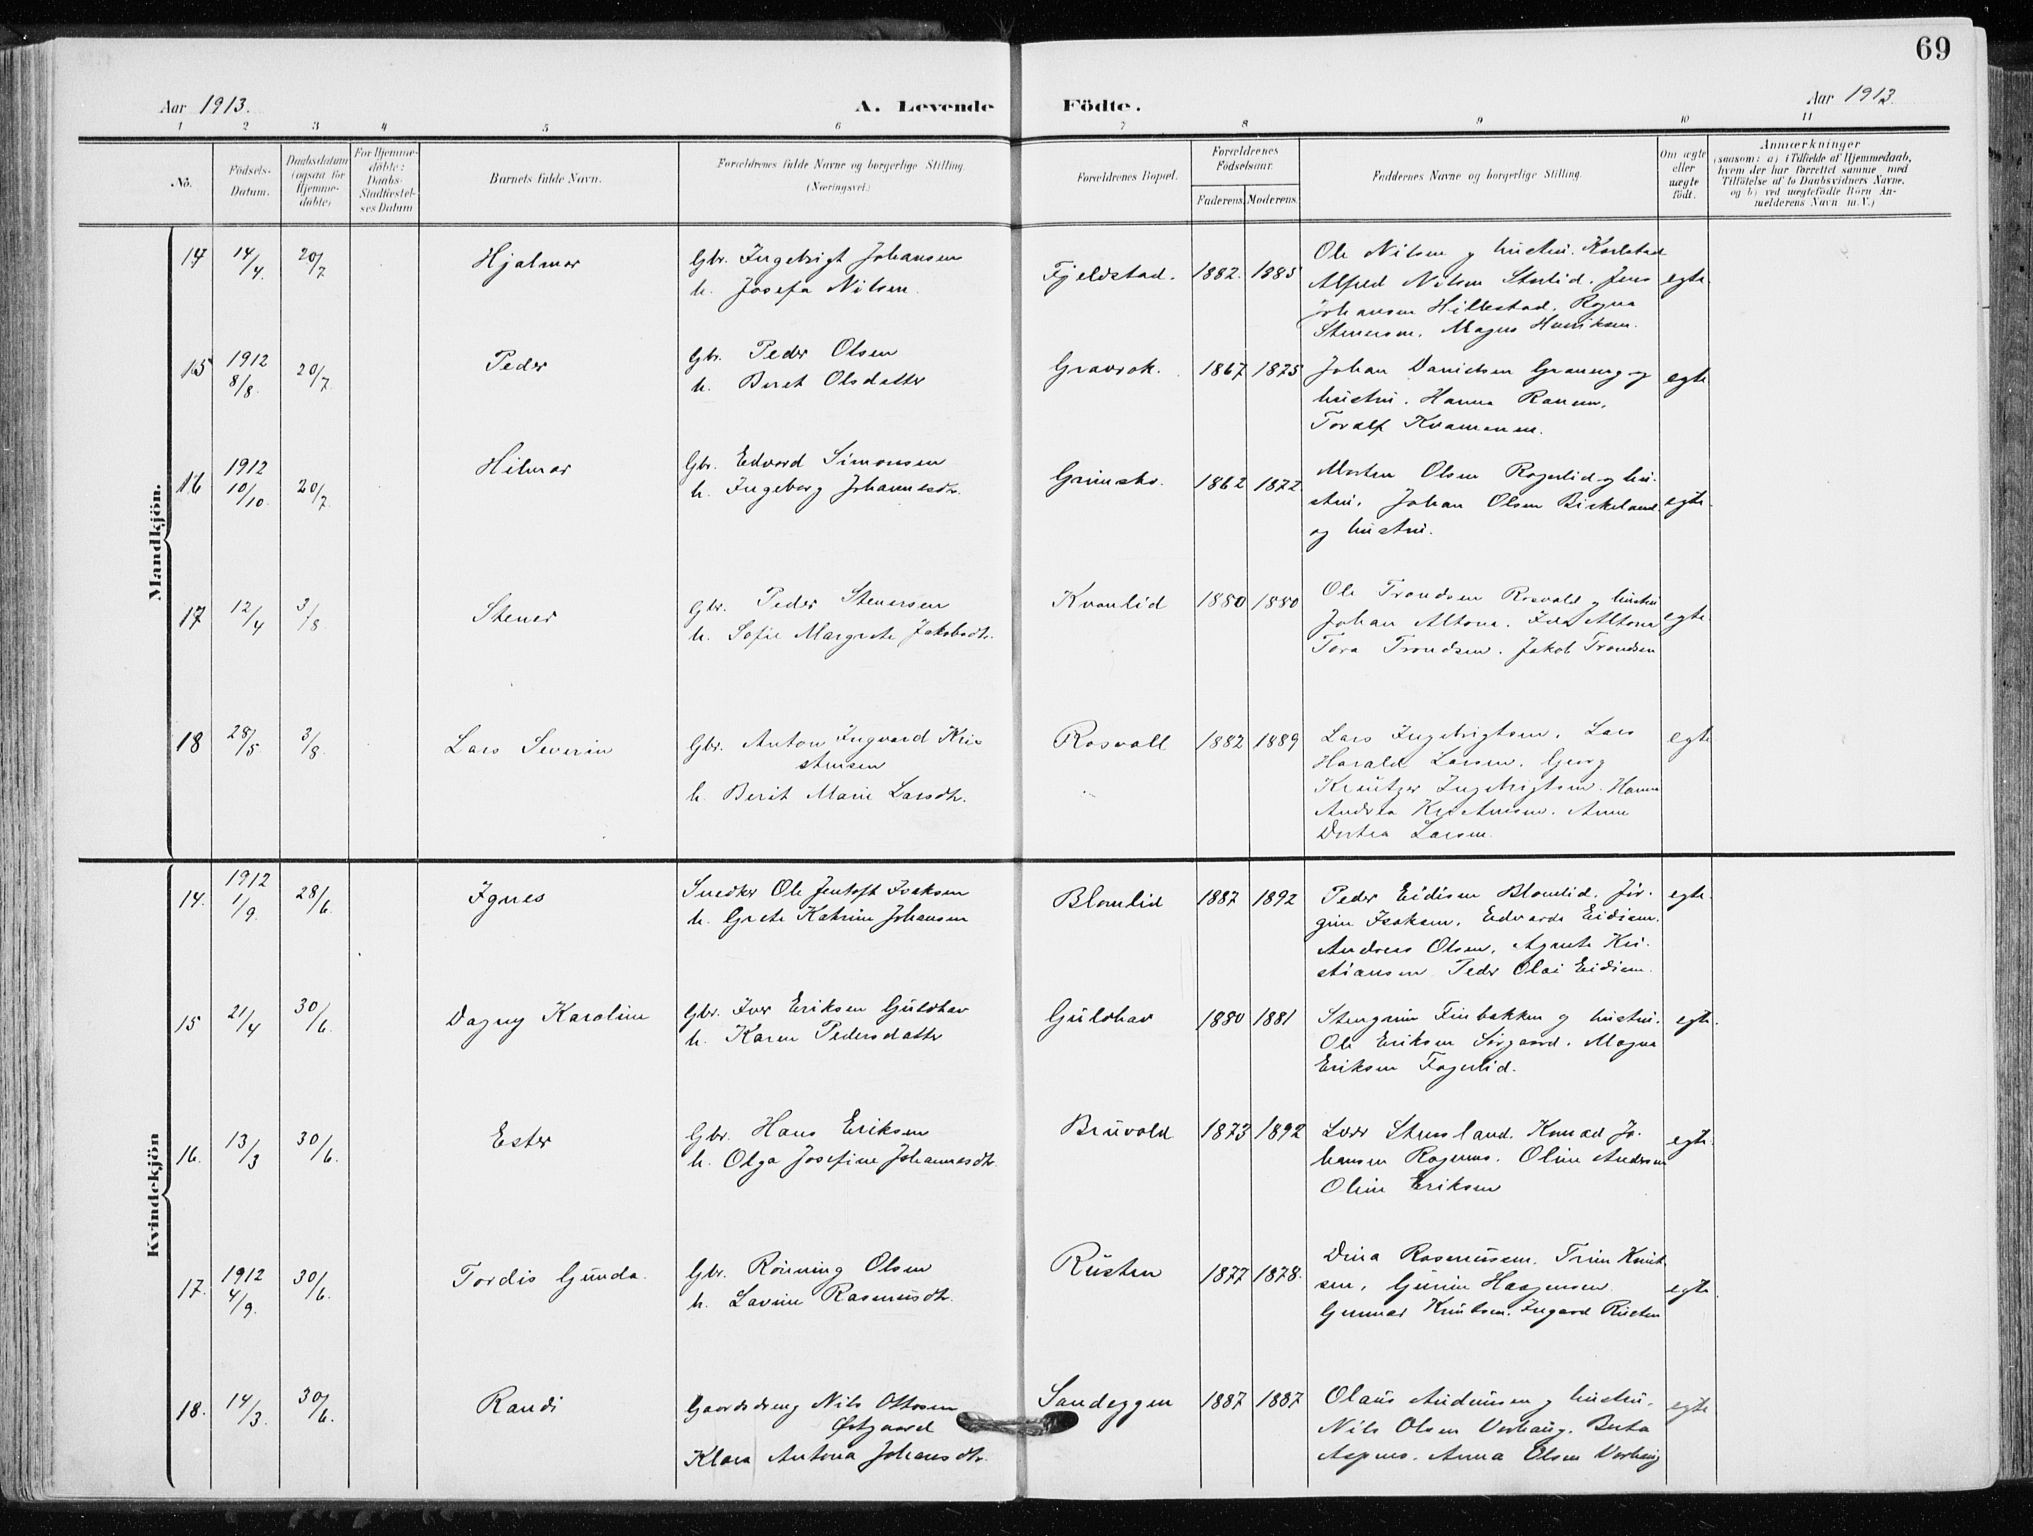 69
Aar 1913. A. Levende Födte. Aar 1913.
1 2 3 4 5 6 7 8 9 10 11
No.
Födsels-
Datum.
Daabsdatum
(ogsaa for
Hjemme-
døbte)
For Hjemme-
døbte:
Daabs-
Stadfæstel-
ses Datum
Barnets fulde Navn.
Forældrenes fulde Navne og borgerlige Stilling.
(Næringsvei.)
Forældrenes Bopæl.
Forældrenes
Födselsaar.
Faderens. Moderens.
Faddernes Navne og borgerlige Stilling.
Om ægte
eller
uægte
født.
Anmærkninger
(saasom: a) i Tilfælde af Hjemmedaab,
hvem der har forrettet samme med
Tilföielse af to Daabsvidners Navne,
og b) ved uægtefödte Börn An-
melderens Navn m. V.)
Mandkjön.
14 14/4. 20/7 Hjalmar Gbr. Ingebrigt Johansen
h. Josefa Nilsen.
Fjeldstad. 1882. 1885
Ole Nilsen og hustru. Karlstad
Alfred Nilsen Storlid. Jens
Johansen Hillestad. Ragna
Stenersen. Magna Henriksen.
egte.
15 1912
8/8. 20/7. Peder Gbr. Peder Olsen
h. Beret Olsdatter
Gravrok. 1867 1875
Johan Danielsen Graneng og
hustru. Hanna Ransen.
Toralf Kvamenen.
egte
16 1912
10/10. 20/7. Hilmar Gbr. Edvard Simonsen
h. Ingeborg Johannesdr.
Grimsho. 1862 1872.
Morten Olsen Rogerlid og hu-
stru. Johan Olsen Birkeland
og hustru.
egte.
17 12/4 3/8 Stener Gbr. Peder Stenersen
h. Sofie Margrete Jakobsdtr.
Kvanlid 1880 1880
Ole Trondsen Rosvold og hustru
Johan Altona. Ida Altona
Tora Trondsen. Jakob Trondsen
egte.
18 28/5 3/8. Lars Severin Gbr. Anton Ingvard Kri
stensen
h. Berit Marie Larsdtr.
Rosvoll 1882 1889
Lars Ingebrigtsen. Lars
Harald Larsen. Georg
Kreutzer Ingebrigtsen. Hanna
Andrea Kristensen. Anne
Dortea Larsen.
egte
Kvindekjön
14. 1912
1/9. 28/6. Agnes Snedker Ole Jentoft Isaksen
h. Grete Katrine Johansen
Blomlid 1887 1892
Peder Eidisen Blomlid. Jør-
gine Isaksen. Edvarda Eidisen.
Andreas Olsen. Agnete Kri-
stiansen Peder Olai Eidisen.
egte.
15 21/4 30/6. Dagny Karoline Gbr. Iver Eriksen Guldhav
h. Karen Pedersdatter
Guldhav 1880 1881
Stengrim Finbakken og hustru.
Ole Eriksen Sørgaard. Magna
Eriksen Fagerlid.
egte.
16. 13/3 30/6. Ester Gbr. Hans Eriksen
h. Olga Josefine Johannesdtr.
Bruvold 1873 1892
Konrad Jo-
hansen Rognmo. Oline Andersen
Oline Eriksen
egte.
17. 1912
4/9. 30/6. Tordis Gunda. Gbr. Rönning Olsen
h. Lavine Rasmusdtr.
Rusten 1877 1878.
Dina Rasmussen. Trine Knut
sen, Gurine Haagensen.
Gunnar Knutsen. Ingvard Rusten
egte.
18. 14/3. 30/6. Randi Gaardsdreng Nils Ottosen
Østgaard
Klara Antona Johansdtr.
Sandeggen 1887 1887
Olaus Andreassen og hustru.
Nils Olsen Vorhaug. Berta
Aspmo. Anna Olsen Vorhaug
egte